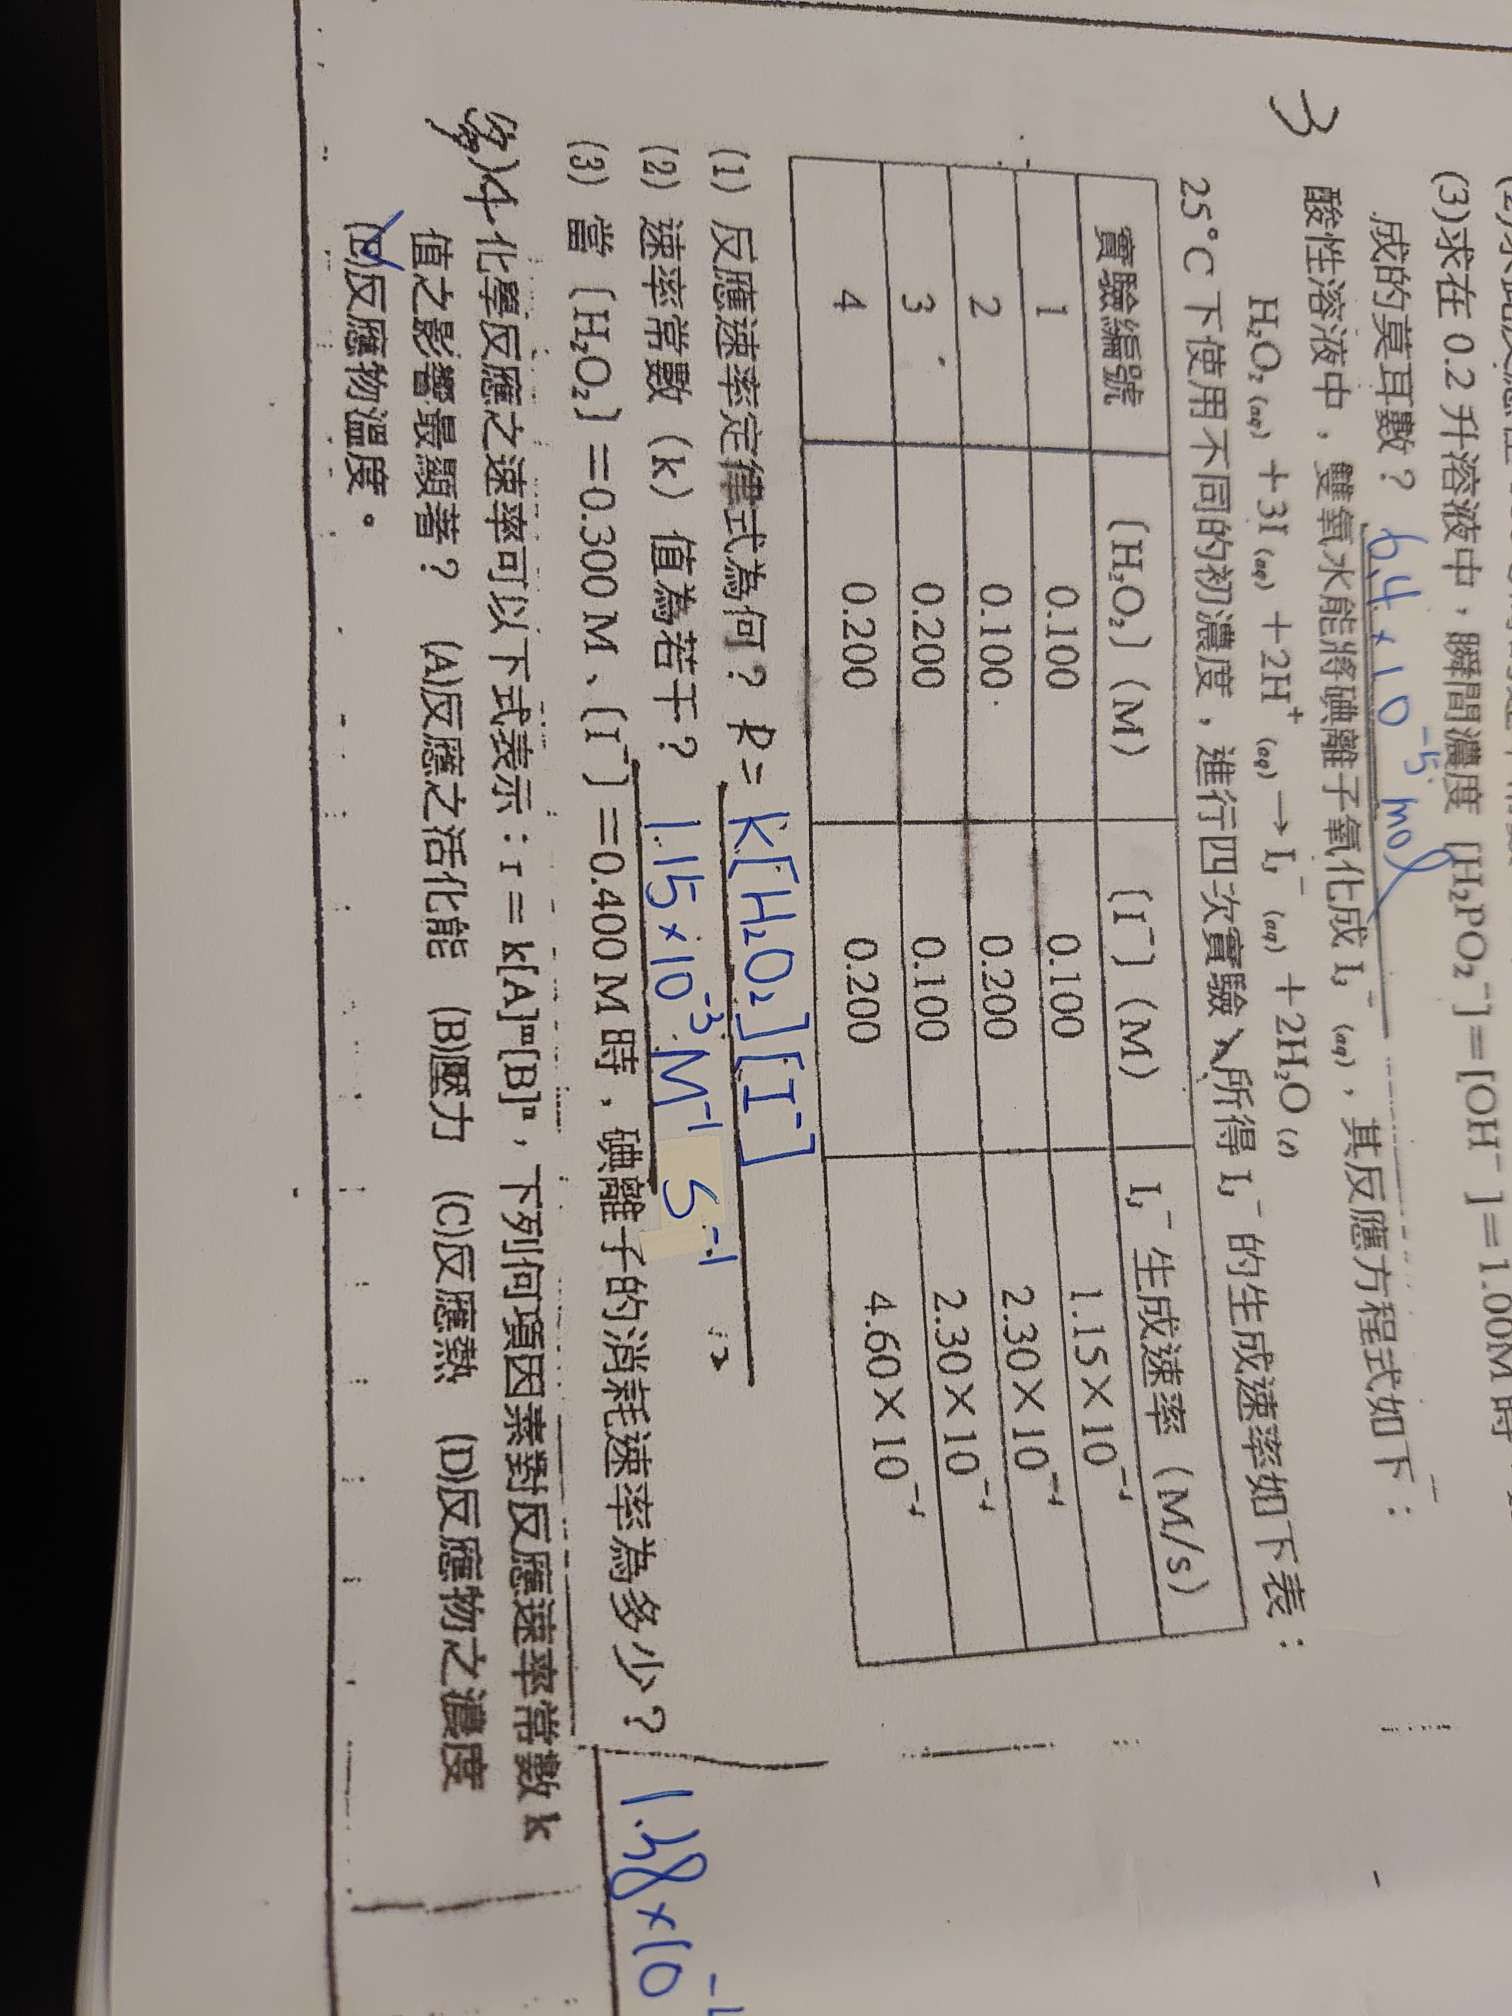 (3)求在 0.2 升溶液中，瞬間濃度 [H₂PO₂⁻]=[OH⁻]=1.00M 時，
成的莫耳數？ 6.4×10⁻⁵ mol
3 酸性溶液中，雙氧水能將碘離子氧化成 I₃⁻(aq)，其反應方程式如下：
H₂O₂(aq)＋3I⁻(aq)＋2H⁺(aq)→I₃⁻(aq)＋2H₂O(ℓ)
25°C 下使用不同的初濃度，進行四次實驗，所得 I₃⁻ 的生成速率如下表：
實驗編號 [H₂O₂]（M） [I⁻]（M） I₃⁻生成速率（M/s）
1 0.100 0.100 1.15×10⁻⁴
2 0.100 0.200 2.30×10⁻⁴
3 0.200 0.100 2.30×10⁻⁴
4 0.200 0.200 4.60×10⁻⁴
(1) 反應速率定律式為何？ R= k[H₂O₂][I⁻]
(2) 速率常數（k）值為若干？ 1.15×10⁻³ M⁻¹ S⁻¹
(3) 當 [H₂O₂]＝0.300 M、[I⁻]＝0.400 M 時，碘離子的消耗速率為多少？
4 化學反應之速率可以下式表示：r＝k[A]ᵐ[B]ⁿ，下列何項因素對反應速率常數 k
值之影響最顯著？ (A)反應之活化能 (B)壓力 (C)反應熱 (D)反應物之濃度
(E)反應物溫度。